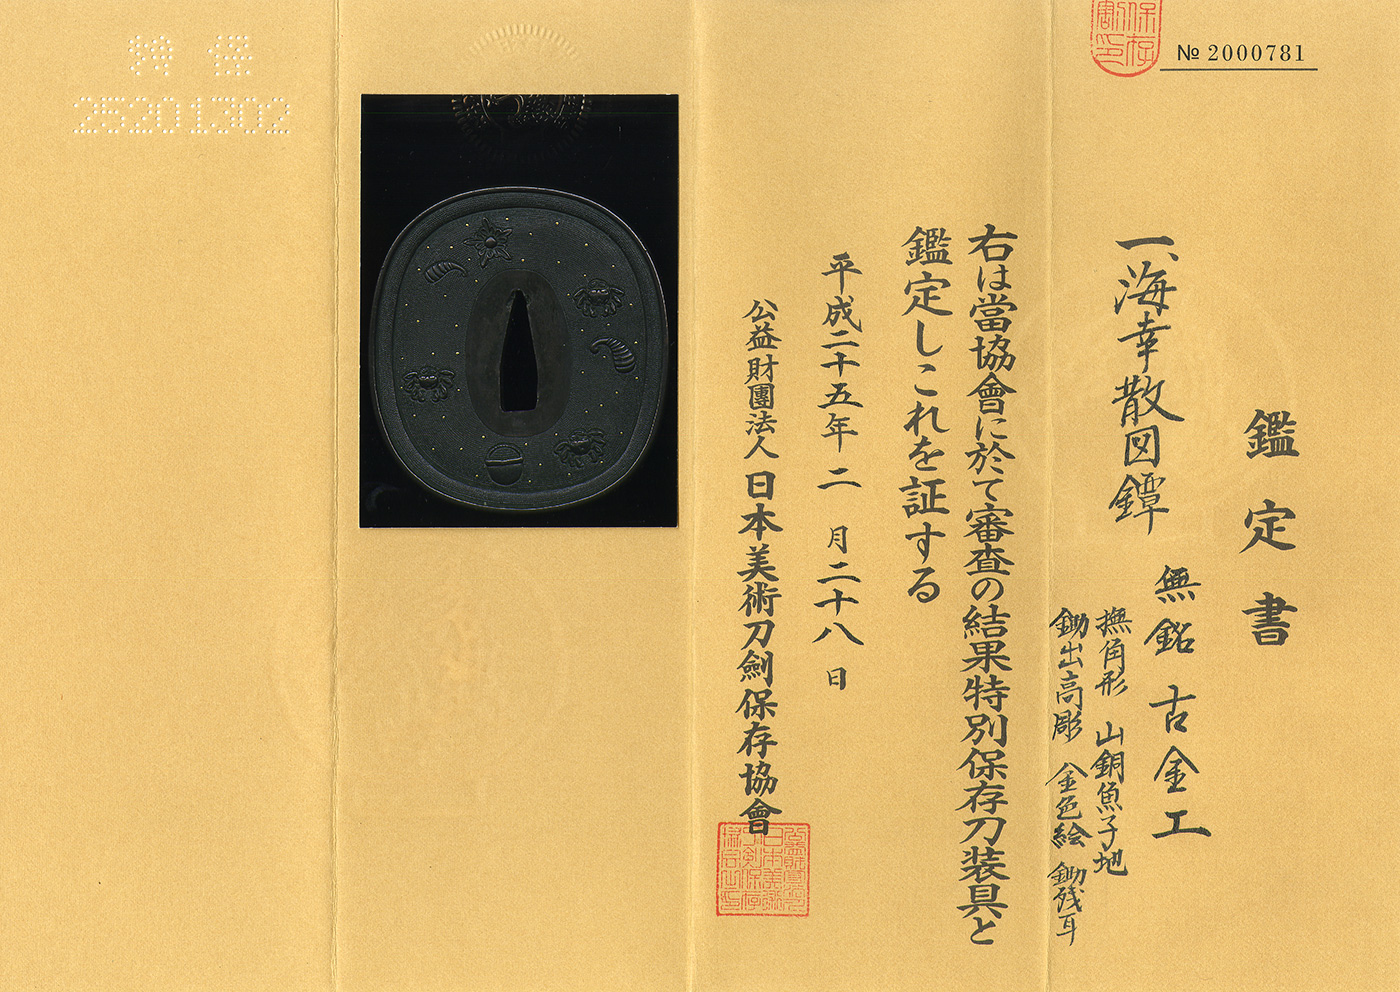 保存
割印
№ 2000781
鑑定書
一、海幸散図鐔 無銘 古金工
撫角形 山銅魚子地
鋤出高彫 金色絵 鋤残耳
右は當協會に於て審査の結果特別保存刀装具と
鑑定しこれを証する
平成二十五年二月二十八日
公益財團法人 日本美術刀劍保存協會
特保
25201302